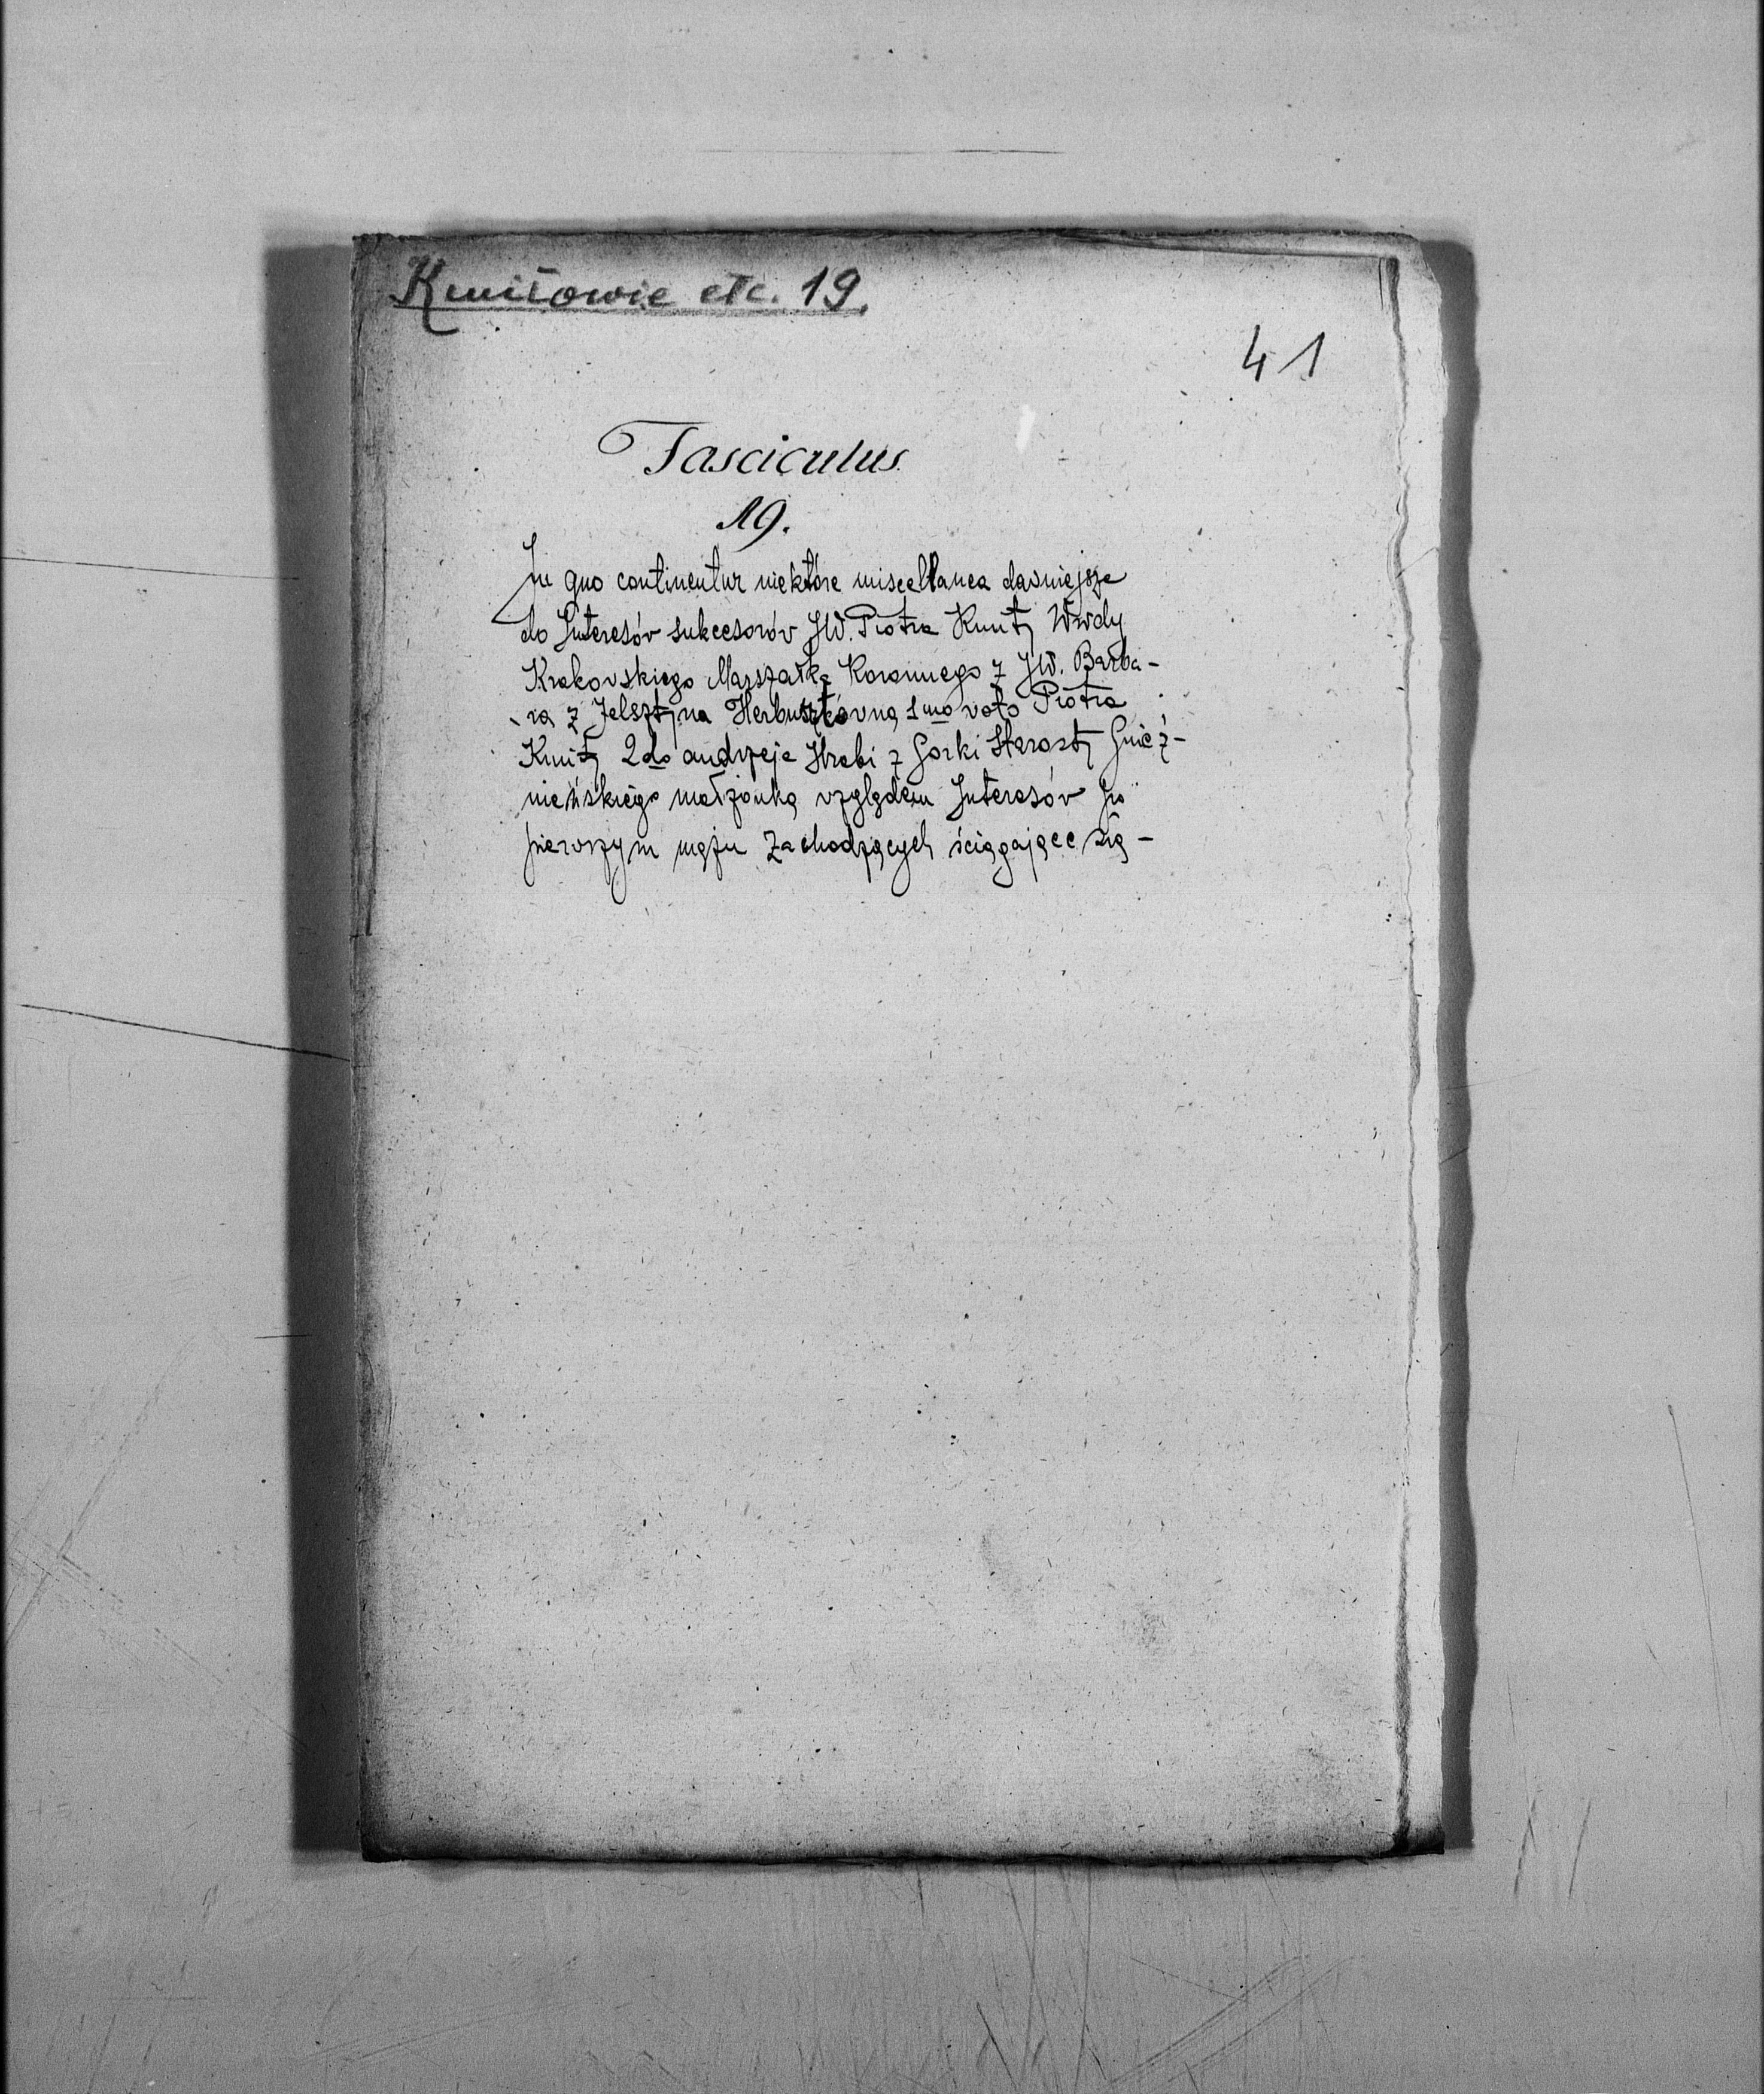 Kmitowie etc. 19.
41
Fasciculus
19.
In quo continentur niektóre miscellanea dawniejsze
do Interesów sukcesorów JW. Piotra Kmity Wwdy
Krakowskiego Marszałka Koronnego z JW. Barba-
rą z Felsztyna Herbusztówną 1mo voto Piotra
Kmity 2do andrzeja Hrabi z Gorki Starosty Gnieź-
nieńskiego małżonką względem Interesów po
pierwszym mężu Zachodzących ściągające się -